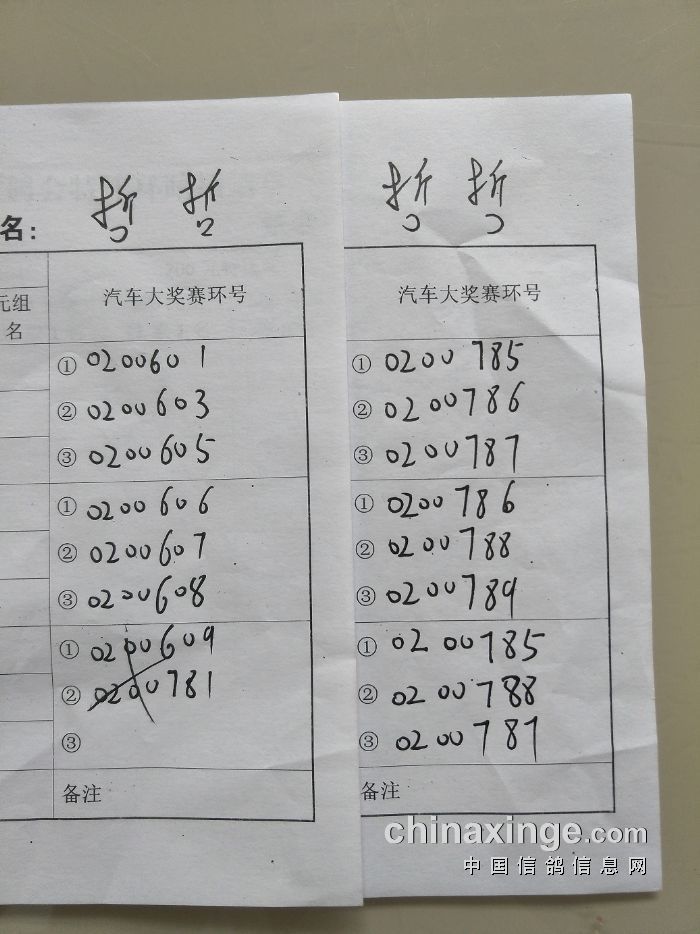 名: 哲 哲
元组
名
汽车大奖赛环号
① 0200601
② 0200603
③ 0200605
① 0200606
② 0200607
③ 0200608
① 0200609
② 0200781
③
备注
哲 哲
汽车大奖赛环号
① 0200785
② 0200786
③ 0200787
① 0200786
② 0200788
③ 0200789
① 0200785
② 0200788
③ 0200787
备注
chinaxinge.com
中国信鸽信息网